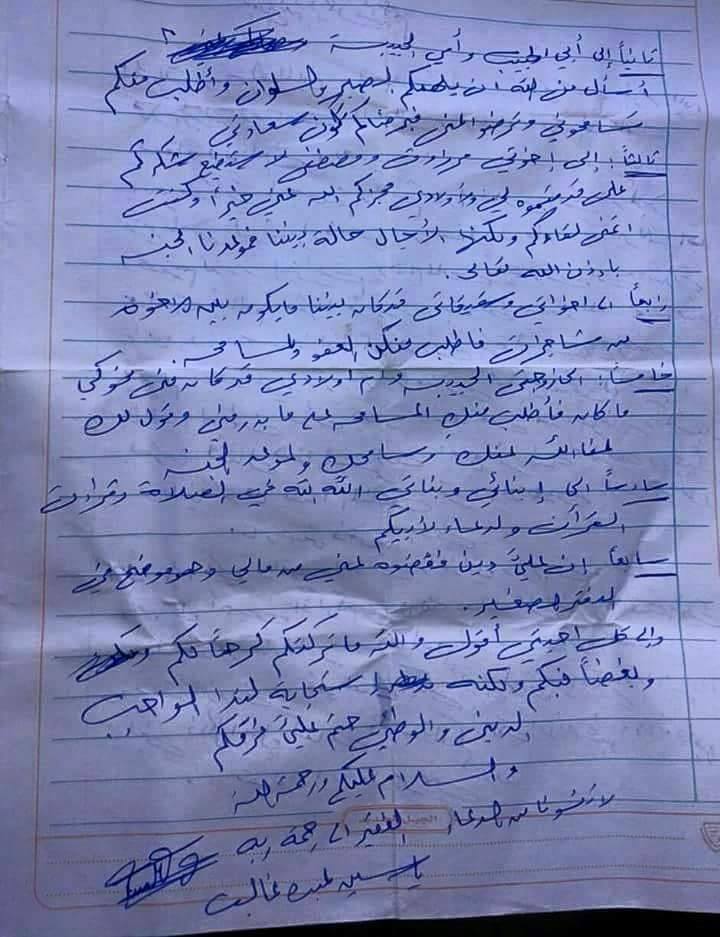 ثانياً إلى أبي الطيب وأمي الحبيبة
أسأل من الله ان يلهمكم الصبر والسلوان وأطلب منكم
تسامحوني وترضوا عني فبرضاكم تكون سعادتي
ثالثاً: إلى إخوتي ومصطفى لا تستطيع شكركم
على ما قدمتموه لي ولأولادي فجزكم الله عني خيراً وكنت
اتمنى لقاءكم ولكنها الآجال حالة بيننا فموعدنا الجنة
بإذن الله تعالى.
رابعاً الى اخواتي وشقيقاتي قد كان بيننا ما يكون بين الاخوة
من مشاجرات فاطلب منكن العفو والمسامحه.
خامساً: الى زوجتي الحبيبه وأم اولادي قد كان مني نحوكي
ما كان فأطلب منك المسامحه على ما بدر مني وقول لك
عفا الله عنك وسامحك والموعد الجنه
سادساً الى إبنائي وبناتي الله الله في الصلاة وقرات
القرآن والدعاء لأبيكم
سابعاً ان عليّ دين فقضوه عني من مالي وهو موضح في
الدفتر الصغير.
وإلى كل احبتي أقول والله ما تركتكم كرهاً لكم
وبغضاً فيكم ولكنه إستجابة لندا الواجب
الديني والوطني حتم عليّ فراقكم
والسلام عليكم ورحمة الله
لا تنسونا من الدعاء الفقير الى رحمة ربه
ياسين غالب